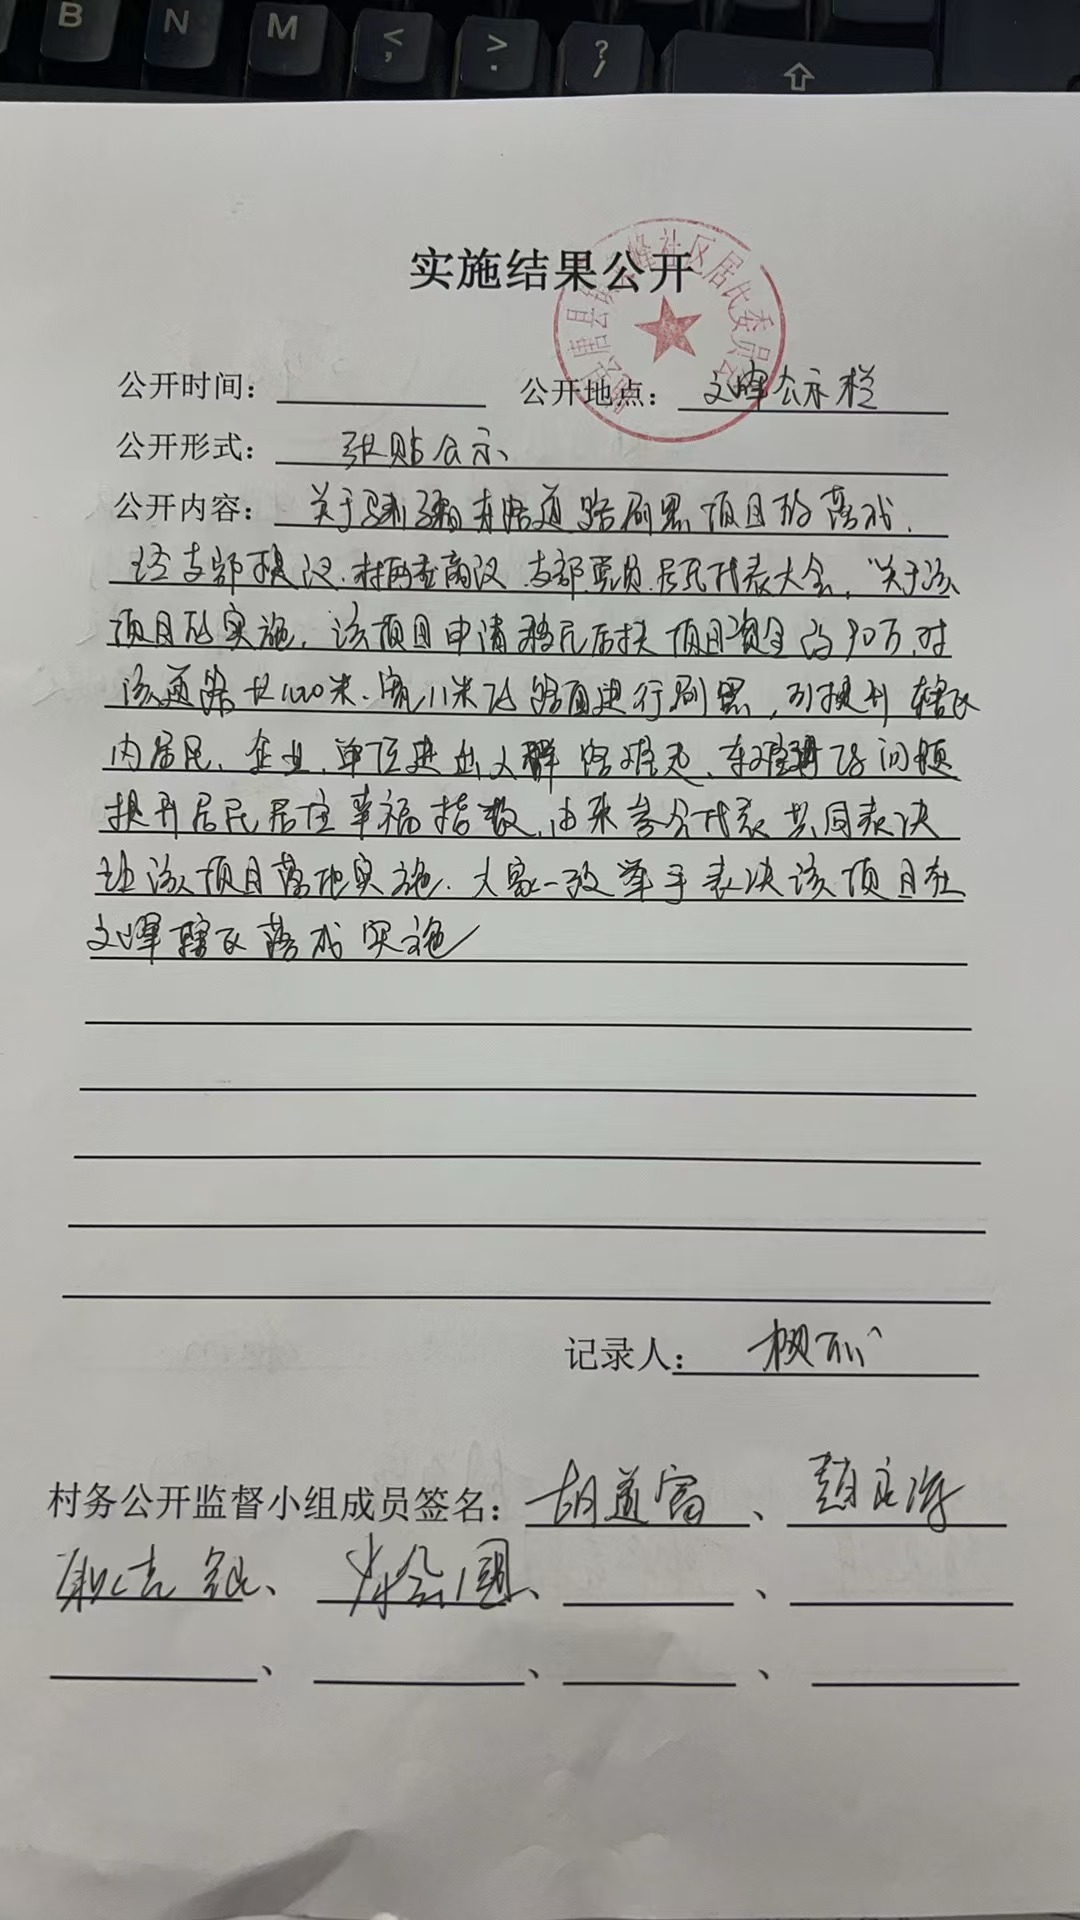 B N M < , > . ? /
实施结果公开
峰社区居民委员会
公开时间： 公开地点：文峰公示栏
公开形式：张贴公示
公开内容：关于 东路道路刷黑项目的落成、
经支部提议、村两委商议、支部党员、居民代表大会，“关于该
项目的实施，该项目申请移民后扶项目资金约90万，对
该道路长1020米、宽11米的路面进行刷黑，可提升辖区
内居民、企业、单位进出人群 的问题
提升居民居住幸福指数，由来参会代表共同表决
让该项目落地实施，大家一致举手表决该项目在
文峰辖区落成实施
记录人：
村务公开监督小组成员签名：胡道富、赵 海
、 国、 、
、 、 、